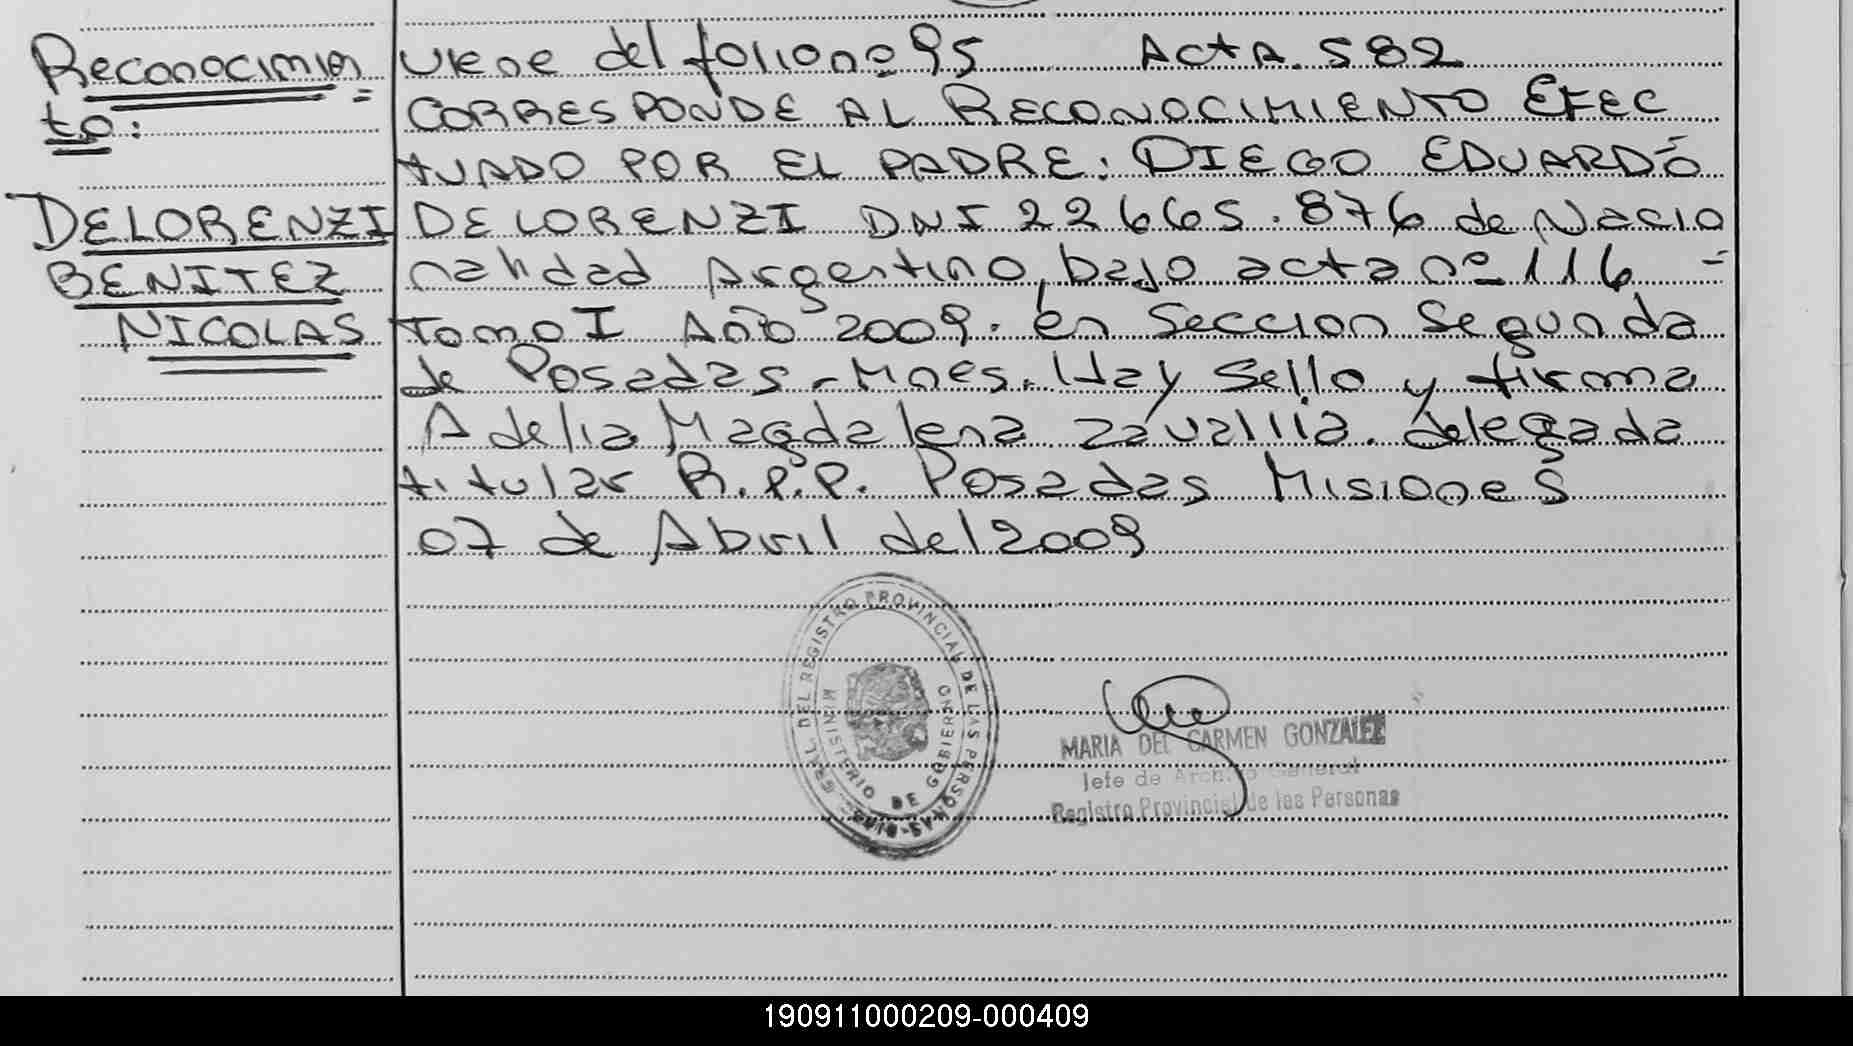 Reconocimien=
to:
DELORENZI
BENITEZ
NICOLAS
viene del folio nº 95 Acta. 582
CORRESPONDE AL RECONOCIMIENTO EFEC
TUADO POR EL PADRE: DIEGO EDUARDO
DELORENZI DNI 22665.876 de Nacio
nalidad Argentino, bajo acta nº 116 =
tomo I Año 2009. en Seccion Segunda
de Posadas - Mnes. Hay Sello y firma
Adelia Magdalena Zavallia. delegada
titular R.P.P. Posadas Misiones
07 de Abril del 2009
GRAL. DEL REGISTRO PROVINCIAL DE LAS PERSONAS
MINISTERIO DE GOBIERNO
MARIA DEL CARMEN GONZALEZ
Jefe de Archivo General
Registro Provincial de las Personas
190911000209-000409